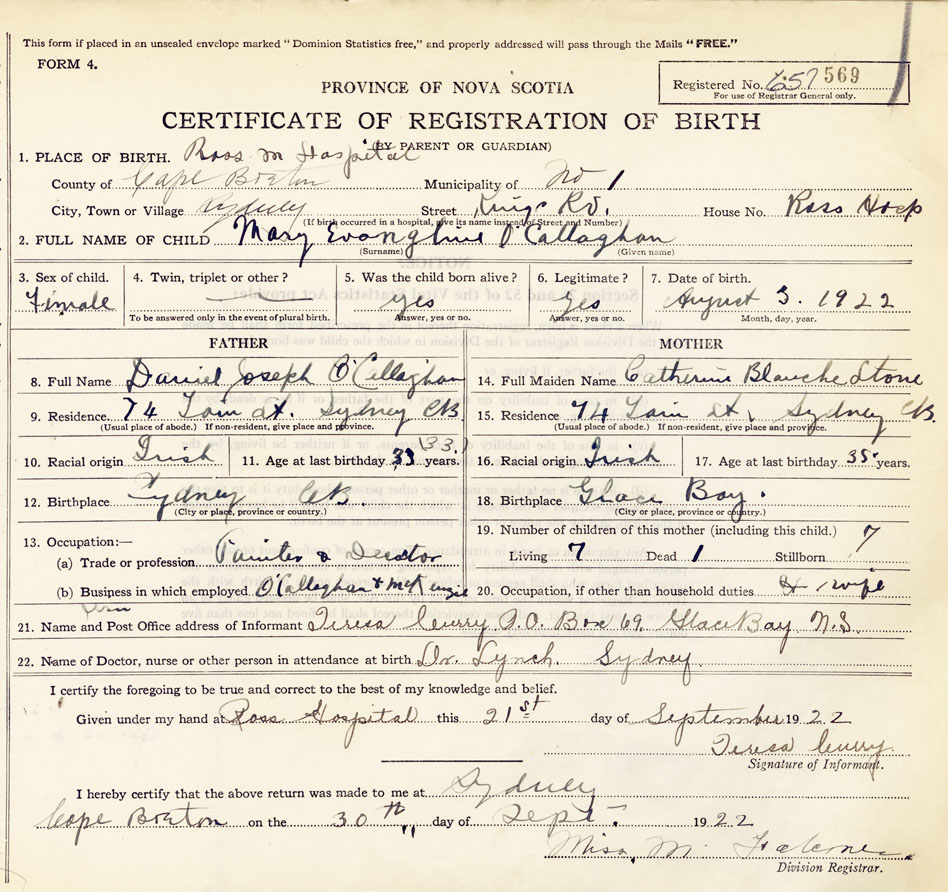 This form if placed in an unsealed envelope marked "Dominion Statistics free," and properly addressed will pass through the Mails "FREE."
FORM 4.
Registered No. 657 569
For use of Registrar General only.
PROVINCE OF NOVA SCOTIA
CERTIFICATE OF REGISTRATION OF BIRTH
(BY PARENT OR GUARDIAN)
1. PLACE OF BIRTH. Ross M Hospital
County of Cape Breton Municipality of No 1
City, Town or Village Sydney Street Kings Rd. House No. Ross Hosp
(If birth occurred in a hospital, give its name instead of Street and Number)
2. FULL NAME OF CHILD Mary Evangline O'Callaghan
(Surname) (Given name)
3. Sex of child. 4. Twin, triplet or other? 5. Was the child born alive? 6. Legitimate? 7. Date of birth.
Female yes yes August 3. 1922
To be answered only in the event of plural birth. Answer, yes or no. Answer, yes or no. Month, day, year.
FATHER MOTHER
8. Full Name Daniel Joseph O'Callaghan 14. Full Maiden Name Catherine Blanche Stone
9. Residence 74 St. Sydney CB 15. Residence 74 St, Sydney CB.
(Usual place of abode.) If non-resident, give place and province. (Usual place of abode.) If non-resident, give place and province.
10. Racial origin Irish 11. Age at last birthday 33 (33.) years. 16. Racial origin Irish 17. Age at last birthday 35 years.
12. Birthplace Sydney CB. 18. Birthplace Glace Bay.
(City or place, province or country.) (City or place, province or country.)
13. Occupation:— 19. Number of children of this mother (including this child.) 7
(a) Trade or profession Painter & Decator Living 7 Dead 1 Stillborn
(b) Business in which employed O'Callaghan & McKenzie 20. Occupation, if other than household duties H wife
21. Name and Post Office address of Informant Teresa Curry P.O. Box 69. Glace Bay N.S.
22. Name of Doctor, nurse or other person in attendance at birth Dr. Lynch. Sydney.
I certify the foregoing to be true and correct to the best of my knowledge and belief.
Given under my hand at Ross Hospital this 21st day of September 1922
Teresa Curry.
Signature of Informant.
I hereby certify that the above return was made to me at Sydney
Cape Breton on the 30th day of Sept. 1922
Miss M.
Division Registrar.